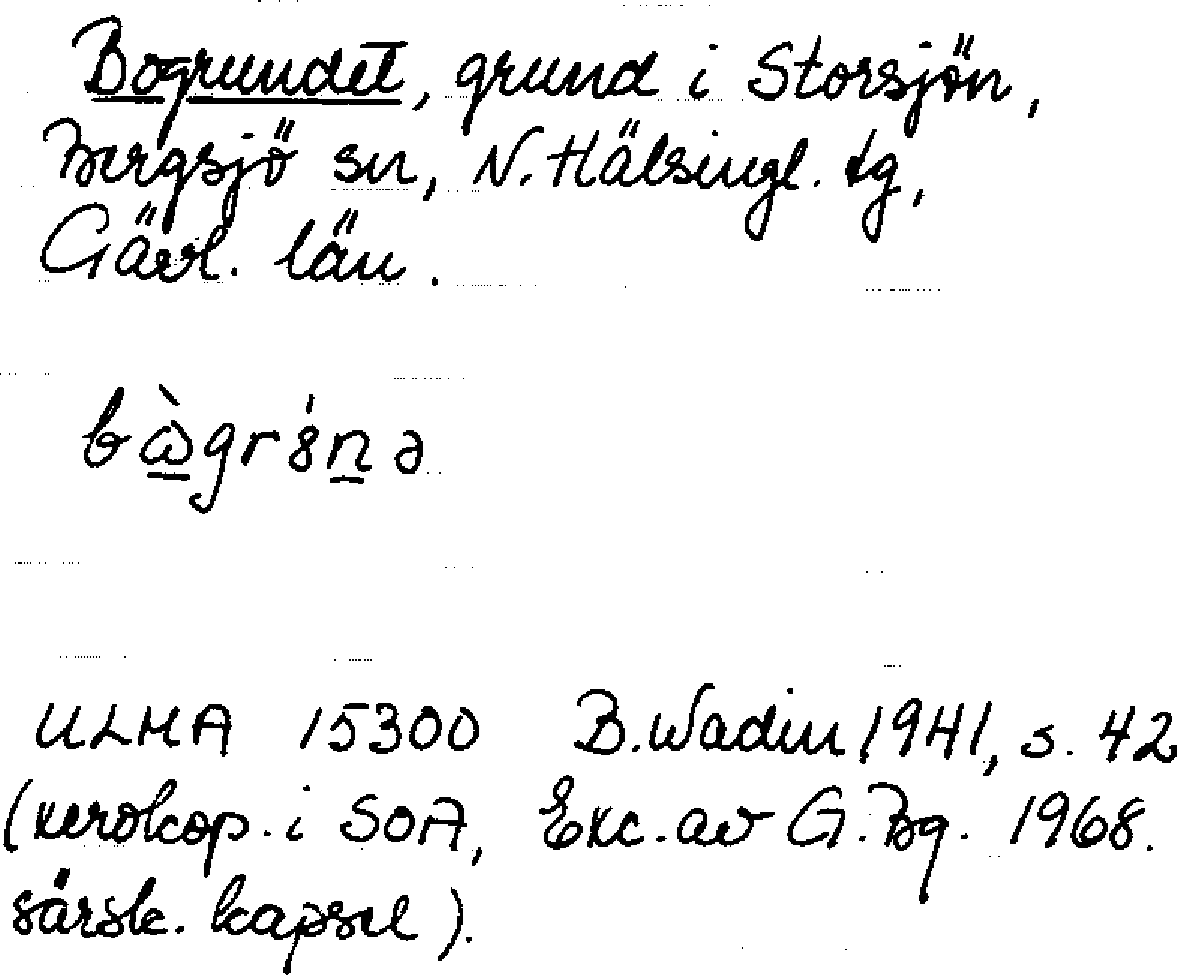 Bogrundet, grund i Storsjön,
Bergsjö sn, N. Hälsingl. tg,
Gävl. län.
bὼgr 8́nə
ULMA 15300 B. Wadin 1941, s. 42
(xerokop. i SOA, Exc. av G. Bg. 1968.
särsk. kapsel).